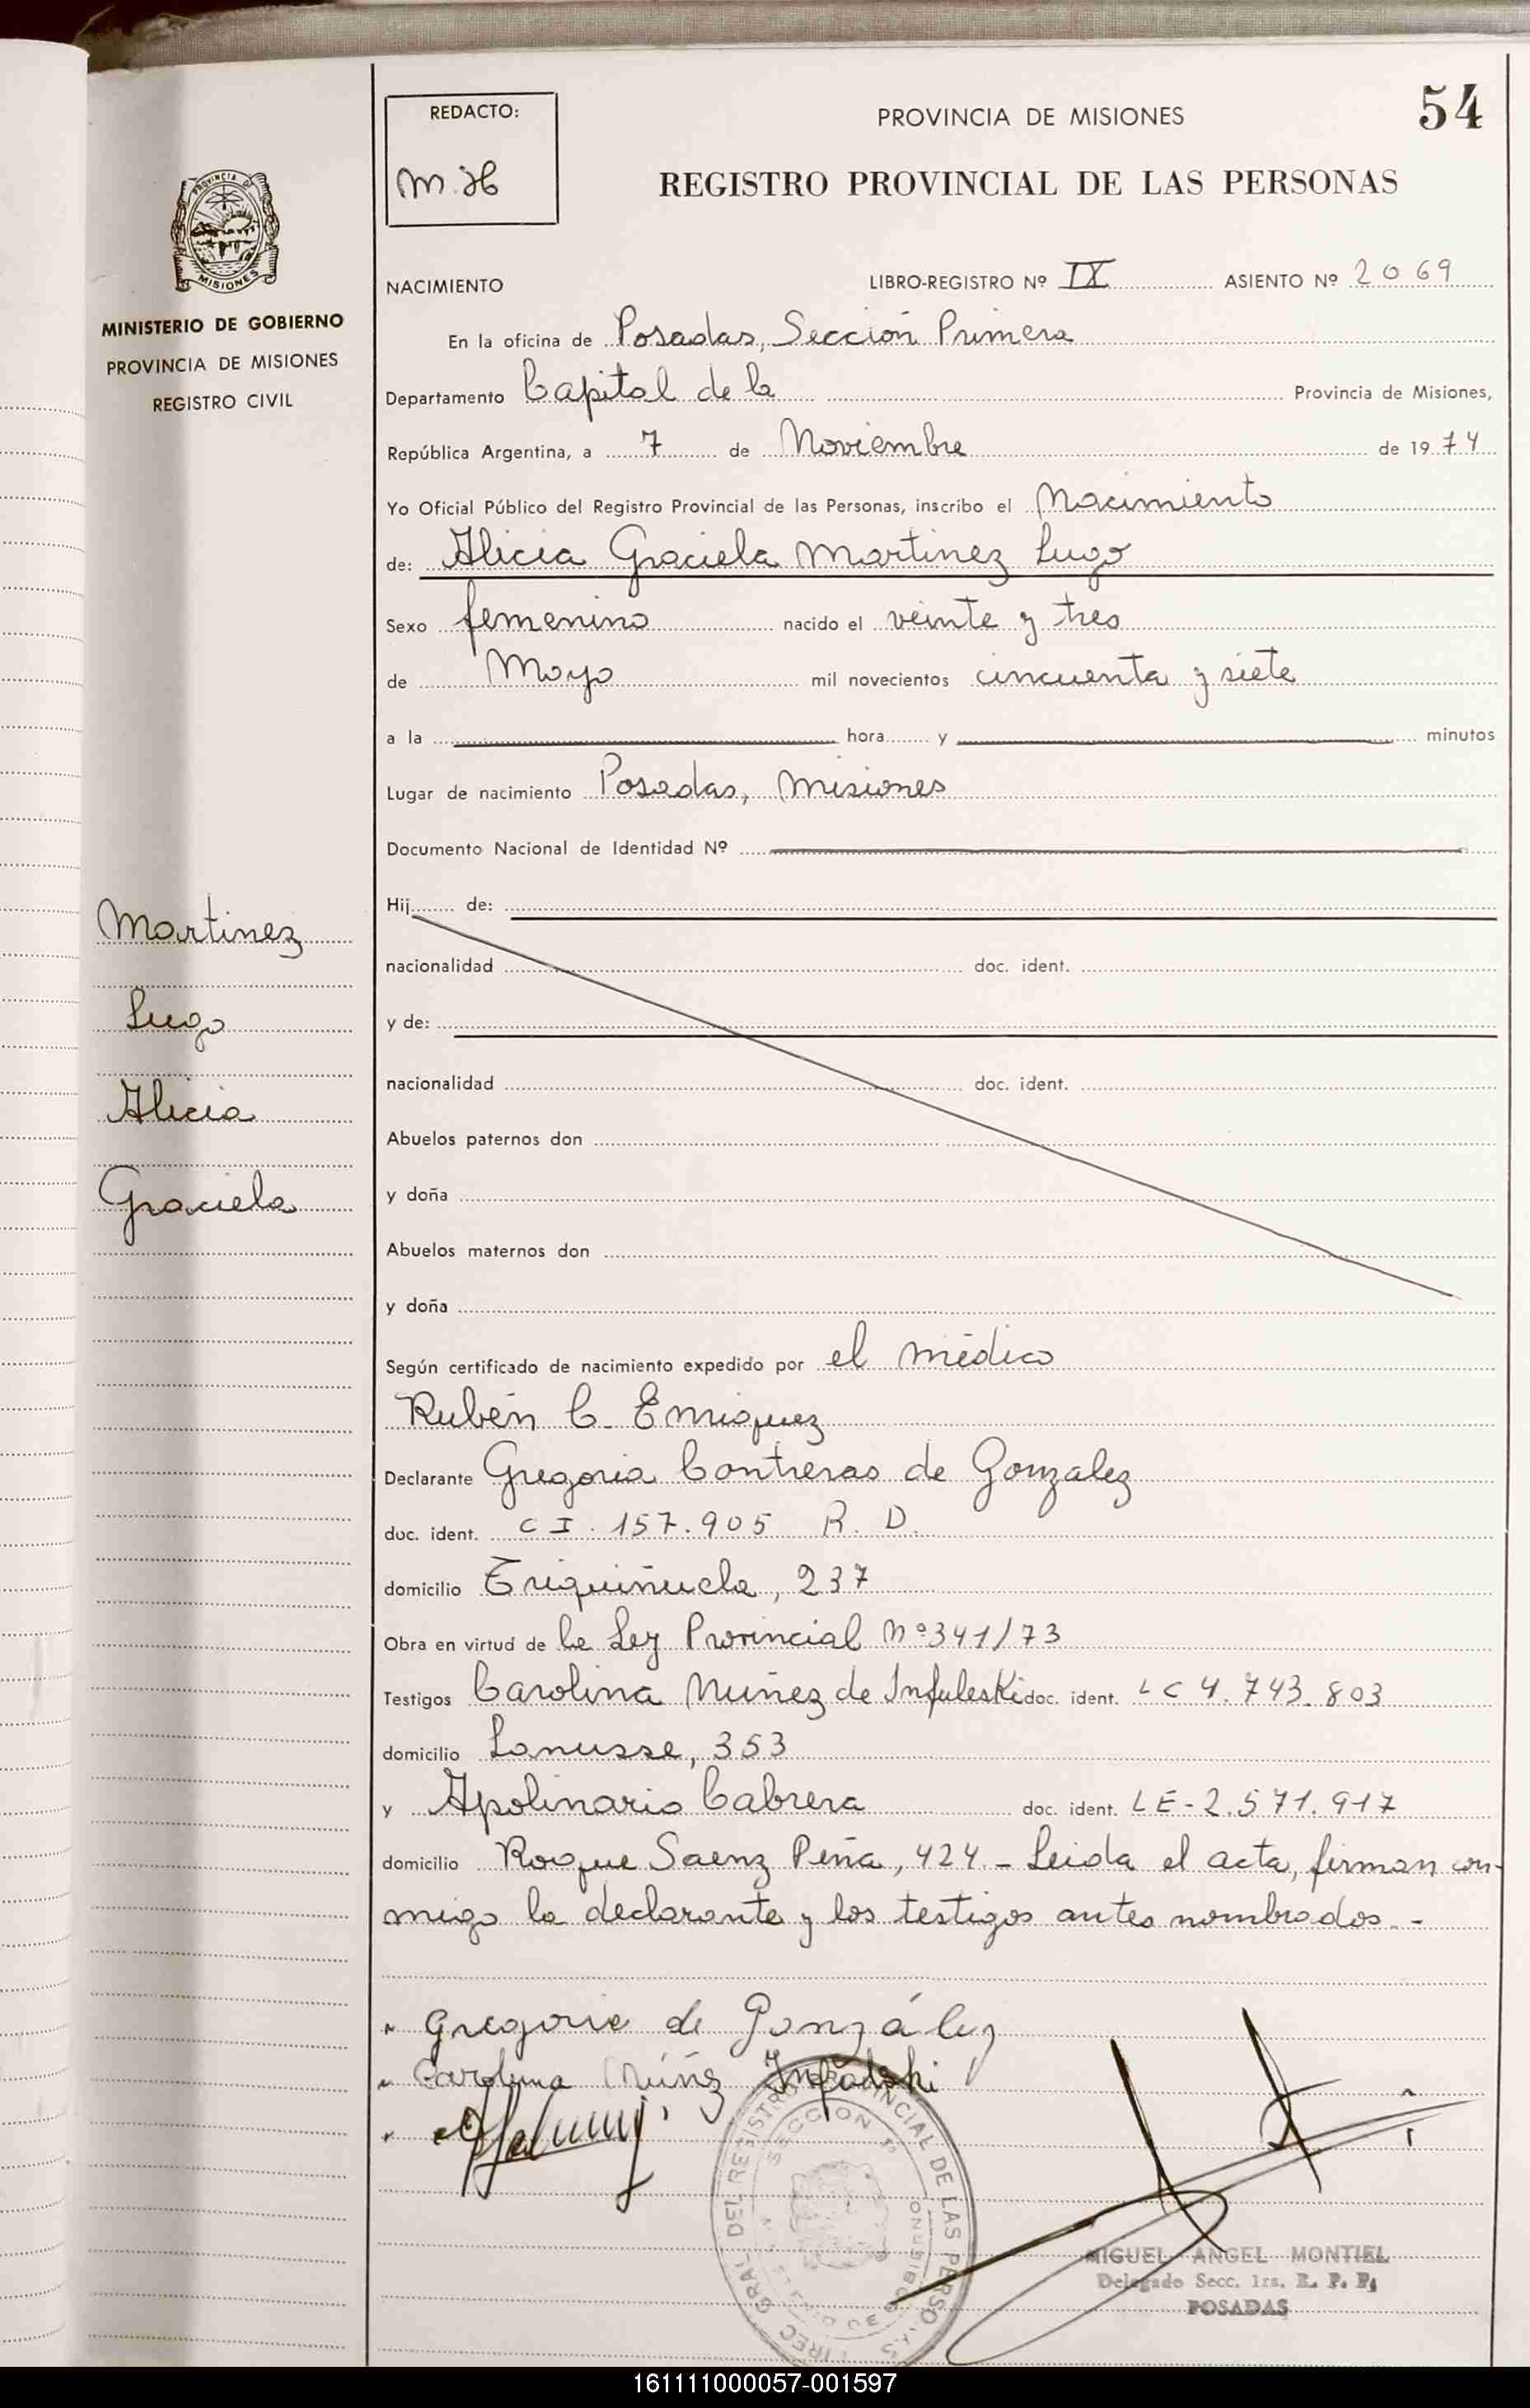 54
REDACTO:
M.H
PROVINCIA DE MISIONES
REGISTRO PROVINCIAL DE LAS PERSONAS
PROVINCIA DE
MISIONES
MINISTERIO DE GOBIERNO
PROVINCIA DE MISIONES
REGISTRO CIVIL
NACIMIENTO LIBRO-REGISTRO Nº IX ASIENTO Nº 2069
En la oficina de Posadas, Sección Primera
Departamento Capital de la Provincia de Misiones,
República Argentina, a 7 de Noviembre de 1974
Yo Oficial Público del Registro Provincial de las Personas, inscribo el Nacimiento
de: Alicia Graciela Martinez Lugo
Sexo femenino nacido el veinte y tres
de Mayo mil novecientos cincuenta y siete
a la hora y minutos
Lugar de nacimiento Posadas, Misiones
Documento Nacional de Identidad Nº
Hij de:
nacionalidad doc. ident.
y de:
nacionalidad doc. ident.
Abuelos paternos don
y doña
Abuelos maternos don
y doña
Martinez
Lugo
Alicia
Graciela
Según certificado de nacimiento expedido por el médico
Rubén C. Enriquez
Declarante Gregoria Contreras de Gonzalez
doc. ident. C I. 157.905 R. D.
domicilio Eriquiñucla, 237
Obra en virtud de la Ley Provincial Nº 341/73
Testigos Carolina Nuñez de Infuleski doc. ident. LC 4.743.803
domicilio Lanusse, 353
y Apolinario Cabrera doc. ident. LE-2.571.917
domicilio Roque Saenz Peña, 424 - Leida el acta, firman con-
migo la declarante y los testigos antes nombrados. -
Gregoria de González
Carolina Núñez
DIREC. GRAL DEL REGISTRO PROVINCIAL DE LAS PERSONAS
SECCION 1ª
MINISTERIO DE GOBIERNO
MIGUEL ANGEL MONTIEL
Delegado Secc. 1ra. R. P. P.
POSADAS
161111000057-001597